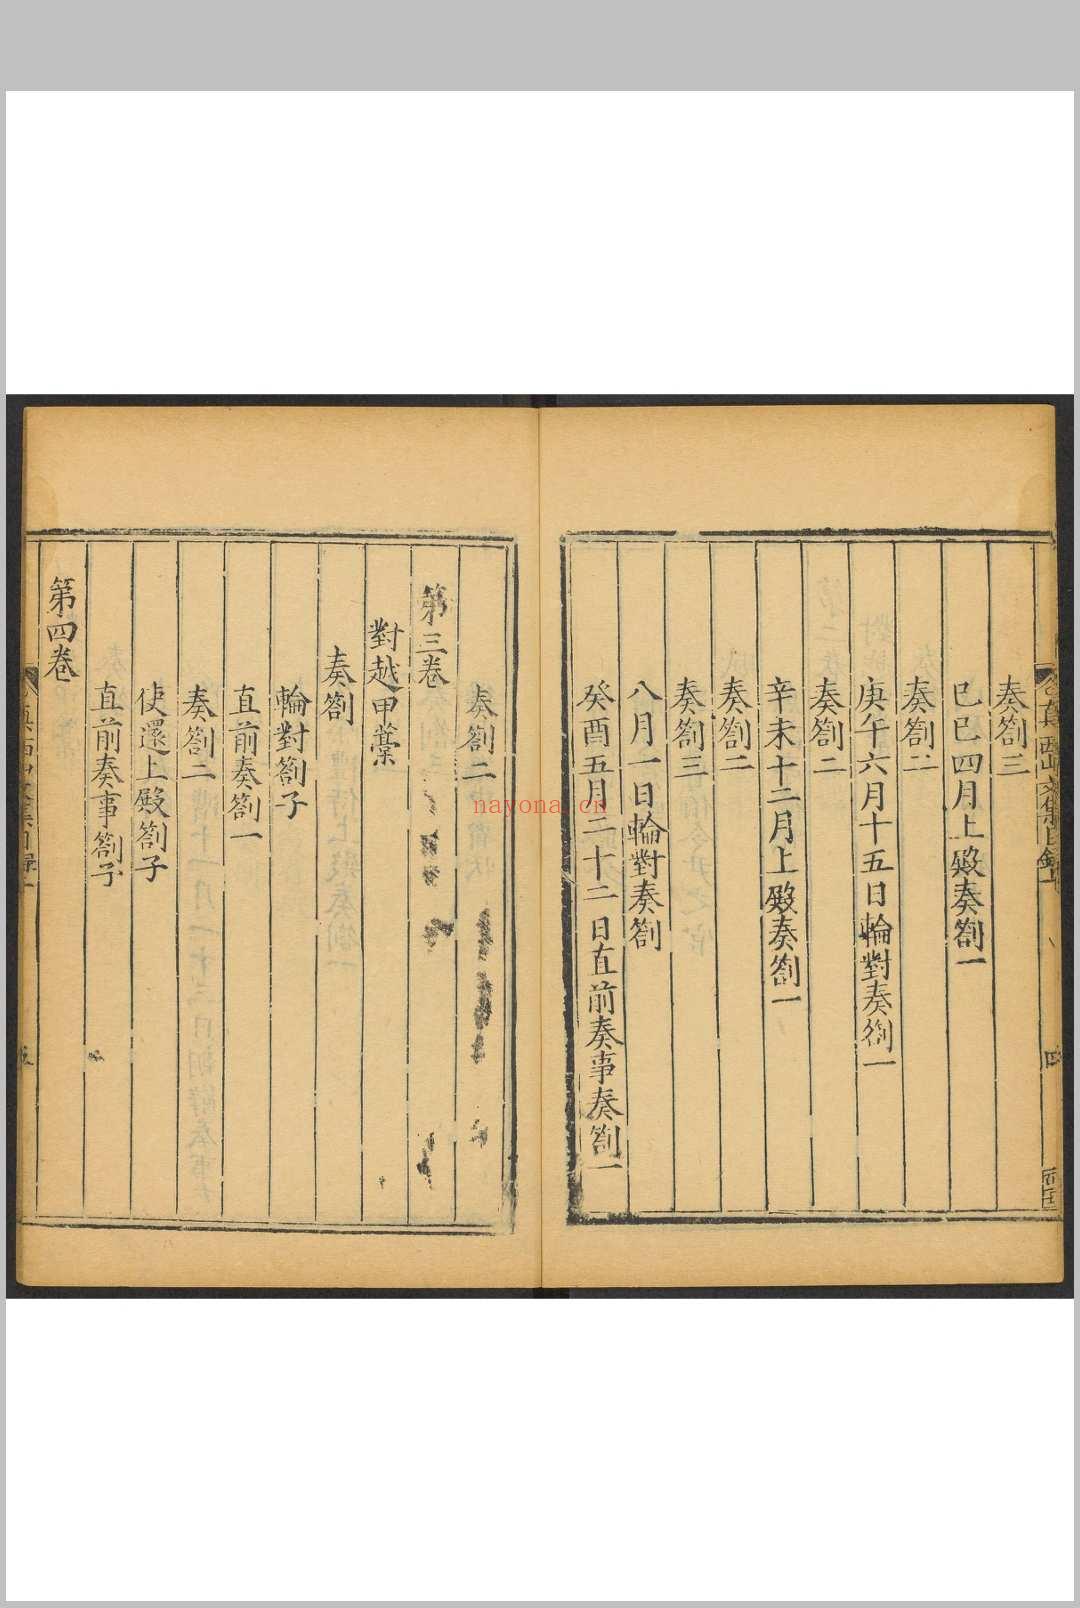 奏劄三
己巳四月上殿奏劄一
奏劄二
庚午六月十五日輪對奏劄一
奏劄二
辛未十二月上殿奏劄一
奏劄二
奏劄三
八月一日輪對奏劄
癸酉五月二十二日直前奏事奏劄一
奏劄二
第三卷
對越甲藁
奏劄
輪對劄子
直前奏劄一
奏劄二
使還上殿劄子
直前奏事劄子
第四卷
nayona.cn